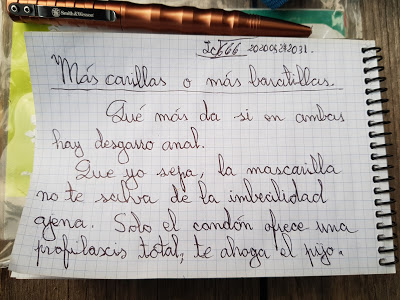 Smith & Wesson
202009282031.
Más carillas o más baratillas.
Qué más da si en ambas
hay desgarro anal.
Que yo sepa, la mascarilla
no te salva de la imbecilidad
ajena. Solo el condón ofrece una
profilaxis total, te ahoga el pijo.